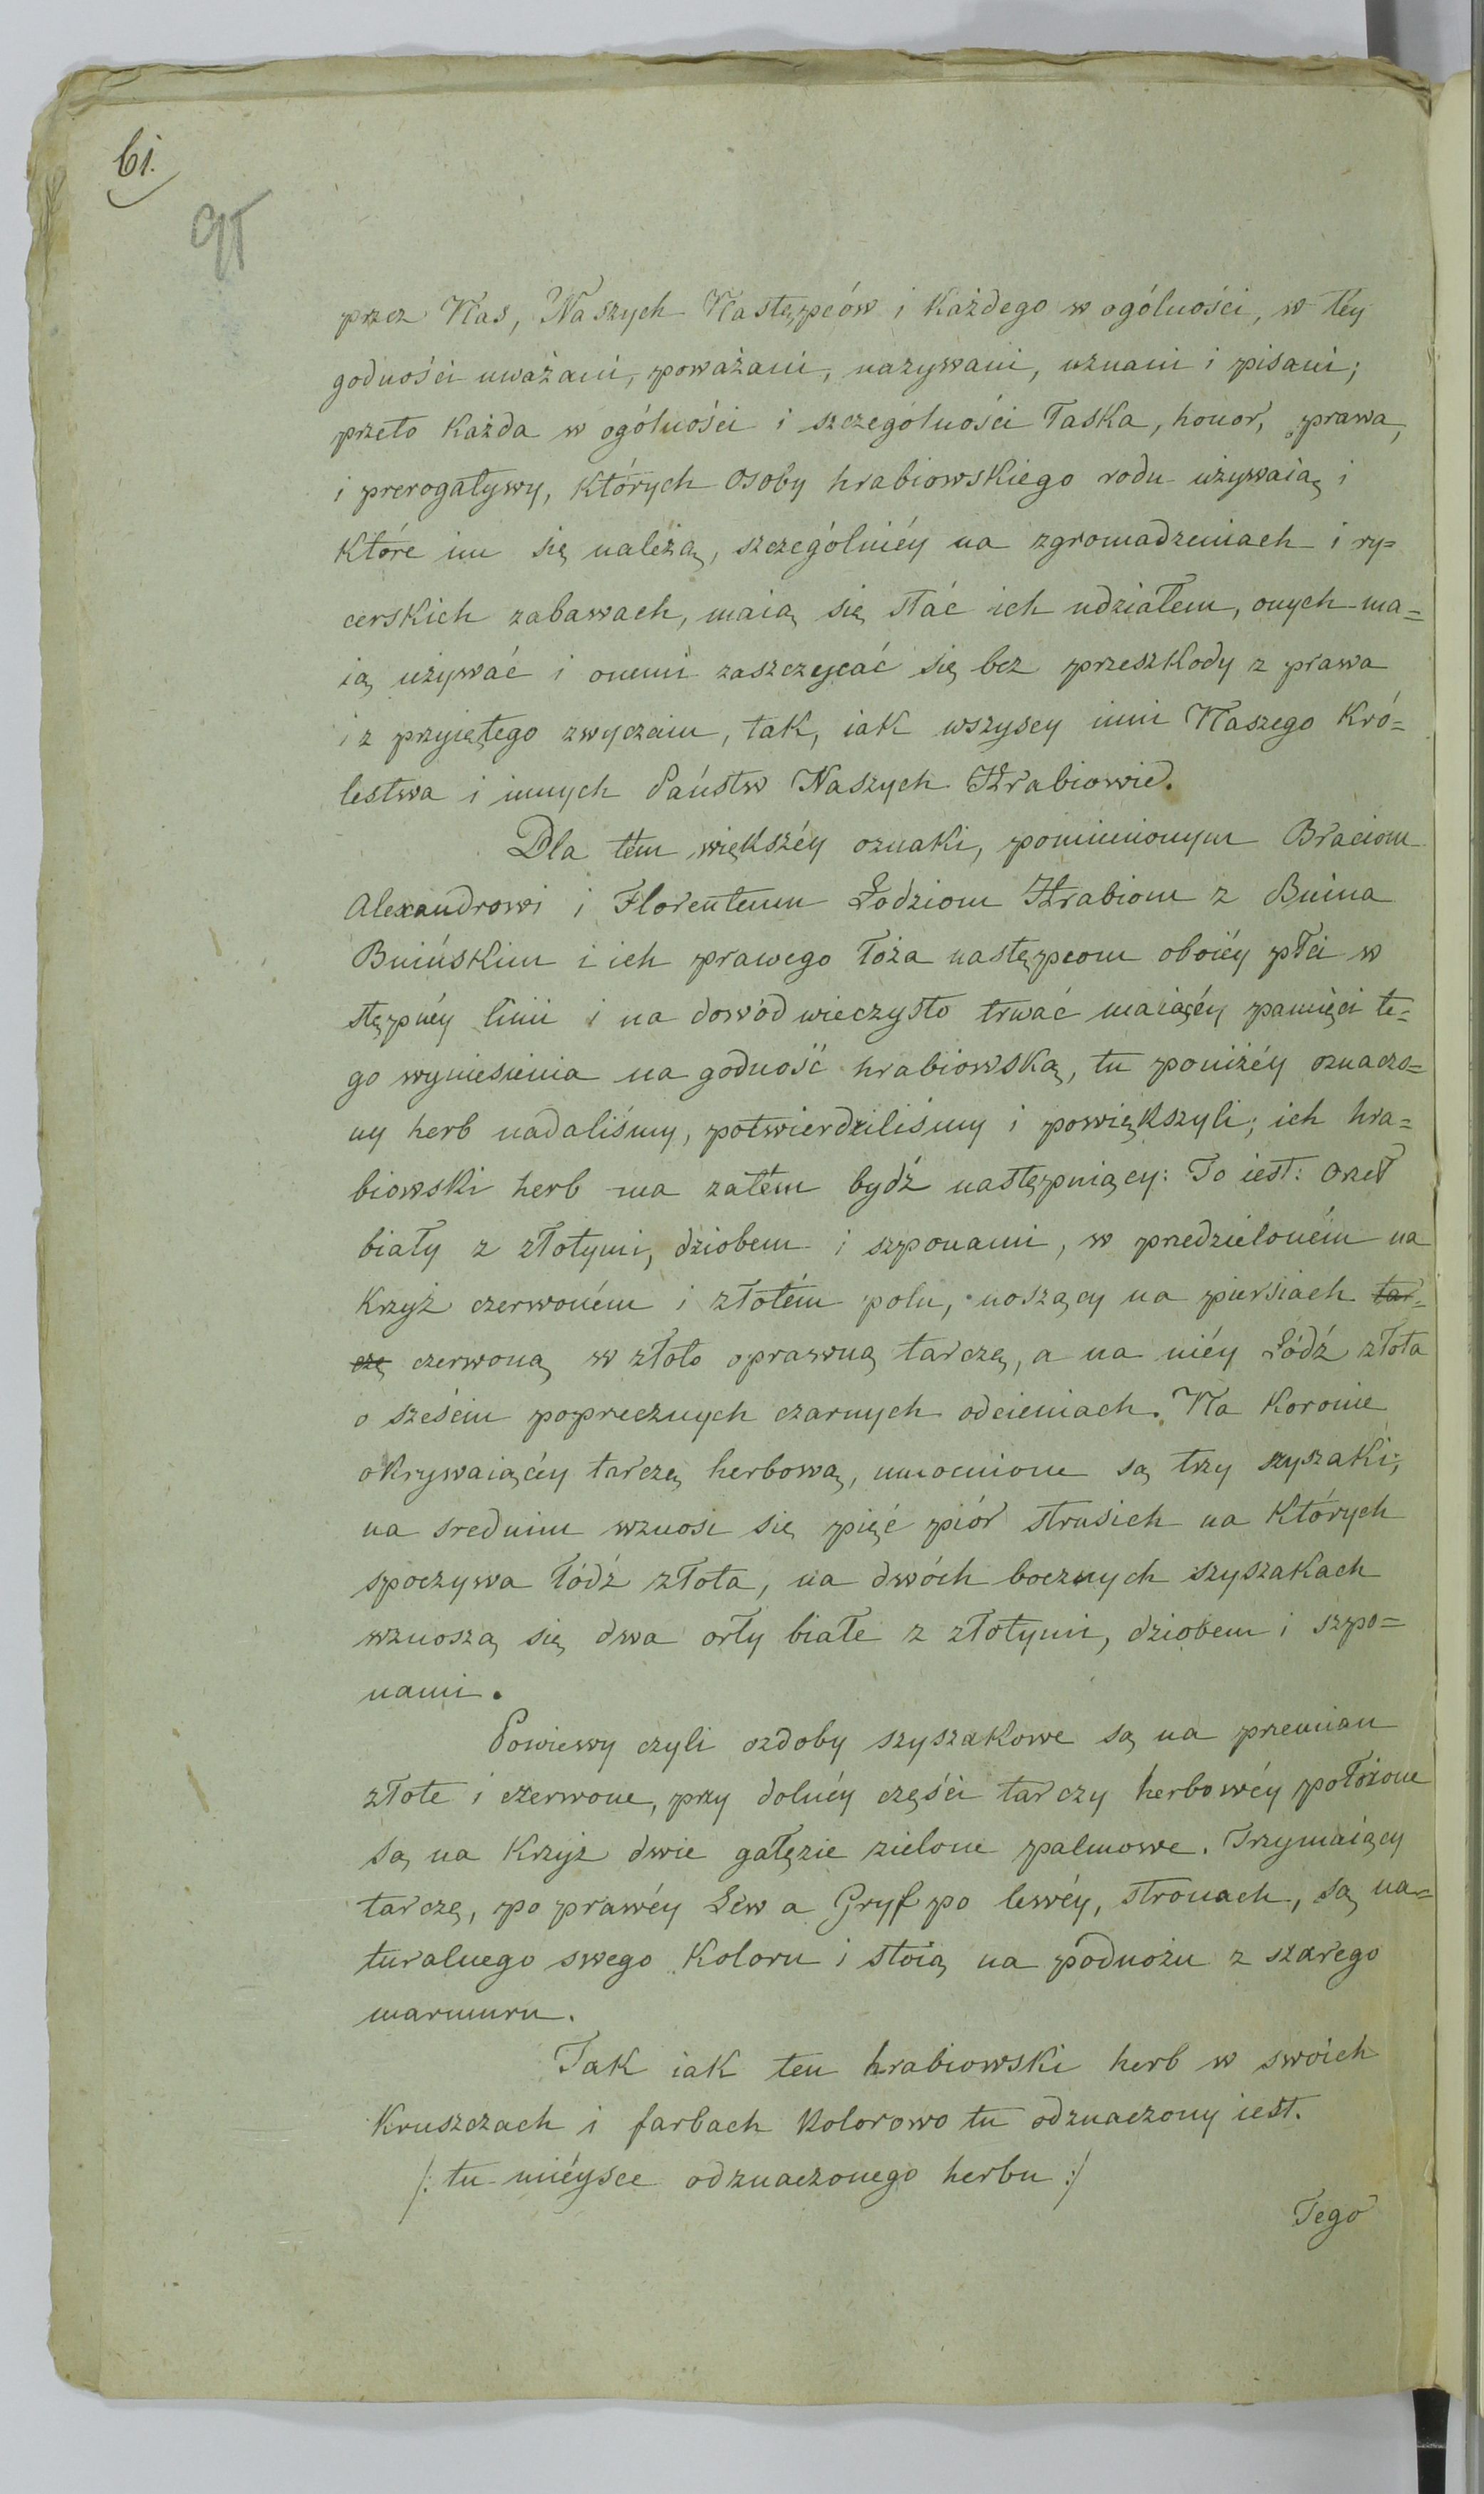 61.
95
przez Nas, Naszych Następców i każdego w ogólności, w tey
godności uważani, poważani, nazywani, uznani i pisani;
przeto każda w ogólności i szczególności łaska, honor, prawa,
i prerogatywy, których osoby hrabiowskiego rodu używaią i
które im się należą, szczególniéy na zgromadzeniach i ry=
cerskich zabawach, maią się stać ich udziałem, onych ma=
ią używać i onemi zaszczycać się bez przeszkody z prawa
i z przyiętego zwyczaiu, tak, iak wszyscy inni Naszego Kró=
lestwa i innych Państw Naszych Hrabiowie.
Dla tém większéy oznaki, pomienionym Braciom
Alexandrowi i Florentemu Łodziom Hrabiom z Bnina
Bnińskim i ich prawego łoża następcom oboiéy płci w
stępnéy linii i na dowód wieczysto trwać maiącéy pamięci te=
go wyniesienia na godność hrabiowską, tu poniżéy oznaczo=
ny herb nadaliśmy, potwierdziliśmy i powiększyli; ich hra=
biowski herb ma zatém bydź następuiący: To iest: Orzeł
biały z złotymi, dziobem i szponami, w przedzieloném na
krzyż czerwoném i złotém polu, noszący na piersiach tar=
czę czerwoną w złoto oprawną tarczę, a na niéy Łódź złota
o sześciu poprzecznych czarnych odcieniach. Na koronie
okrywaiącéy tarczę herbową, umocnione są trzy szyszaki;
na srednim wznosi się pięć piór strusich na których
spoczywa łódź złota, na dwóch bocznych szyszakach
wznoszą się dwa orły białe z złotymi, dziobem i szpo=
nami.
Powiewy czyli ozdoby szyszakowe są na przemian
złote i czerwone, przy dolnéy części tarczy herbowéy położone
są na krzyż dwie gałęzie zielone palmowe. Trzymaiący
tarczę, po prawéy Lew a Gryf po lewéy, stronach, są na=
turalnego swego koloru i stoią na podnożu z szarego
marmuru.
Tak iak ten hrabiowski herb w swoich
Kruszczach i farbach kolorowo tu odznaczony iest.
/: tu miéysce odznaczonego herbu :/
Tego